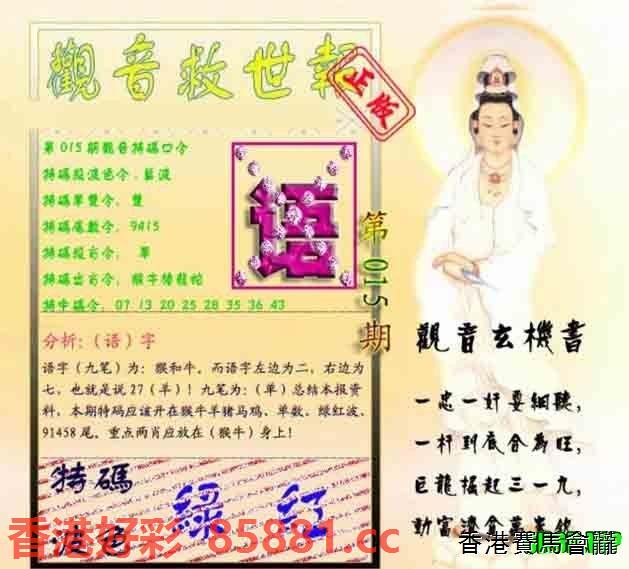 觀音救世報
正版
第015期觀音特碼口令
特碼报波色令:藍波
特碼單雙令:雙
特碼尾數令:9415
特碼报方令: 單
特碼出方令:猴牛猪龍蛇
特中碼令:07 13 20 25 28 35 36 43
语
第015期
分析:（语）字
语字（九笔）为：猴和牛。而语字左边为二，右边为
七，也就是说27（羊）！九笔为：（单）总结本报资
料，本期特码应该开在猴牛羊猪马鸡、单数，绿红波、
91458尾。重点两肖应放在（猴牛）身上！
觀音玄機書
一忠一奸要細聽，
一杆到底合為旺，
巨龍掘起三一九，
特碼
波色
綠 红
香港好彩 85881.cc
香港賽馬會